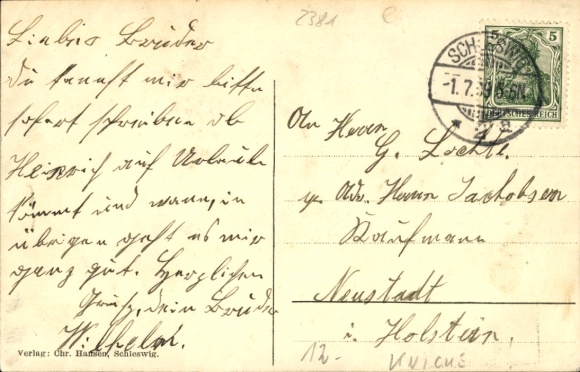 2381
Lieber Bruder
du kannst mir bitte
sofort schreiben ob
Heinrich auf Urlaub
kommt und wann, im
übrigen geht es mir
ganz gut. Herzlichen
Gruß, dein Bruder
Wilhelm.
Verlag: Chr. Hansen, Schleswig.
5 5
SCHLESWIG
-1.7.09 5-6N
DEUTSCHES REICH
An Herrn
G.
Adr. Herrn Jackobsen
Kaufmann
Neustadt
i. Holstein.
12.-